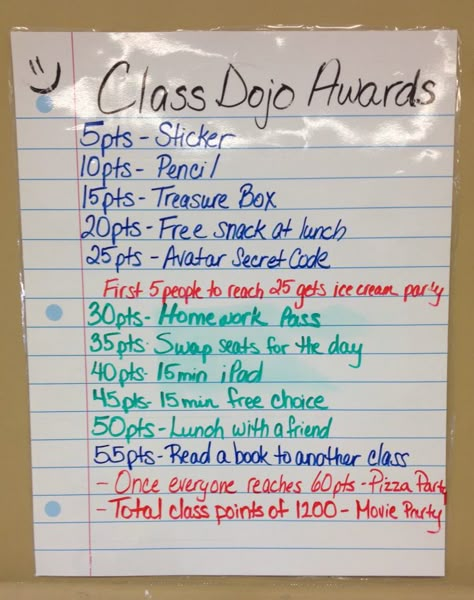 Class Dojo Awards
5pts - Sticker
10pts - Pencil
15pts - Treasure Box
20pts - Free snack at lunch
25pts - Avatar Secret Code
First 5 people to reach 25 gets ice cream party
30pts - Homework Pass
35pts - Swap seats for the day
40pts - 15min iPad
45pts - 15min free choice
50pts - Lunch with a friend
55pts - Read a book to another class
- Once everyone reaches 60pts - Pizza Party
- Total class points of 1200 - Movie Party